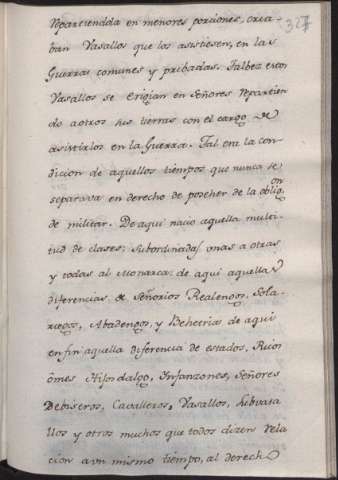 327
repartiendola en menores porciones, crea-
ban Vasallos que los asistiesen, en las
Guerras comunes y pribadas. Talbez estos
Vasallos se erigian en Señores repartien
do a otros sus tierras con el cargo de
asistirlos en la Guerra. Tal era la con-
dicion de aquellos tiempos que nunca se
separava en derecho de poseher de la oblig.on
de militar. De aqui nacio aquella multi-
tud de clases, subordinadas unas a otras
y todas al Monarca: de aqui aquella
diferencias de Señorios Realengos, Sola-
riegos, Abadengos, y Behetrias de aqui
en fin aquella diferencia de estados, Ricos
ômes Hijosdalgo, Ynfanzones, Señores
Debiseros, Cavalleros, Vasallos, Subvasa
llos y otros muchos que todos dizen rela
cion a un mismo tiempo, al derecho